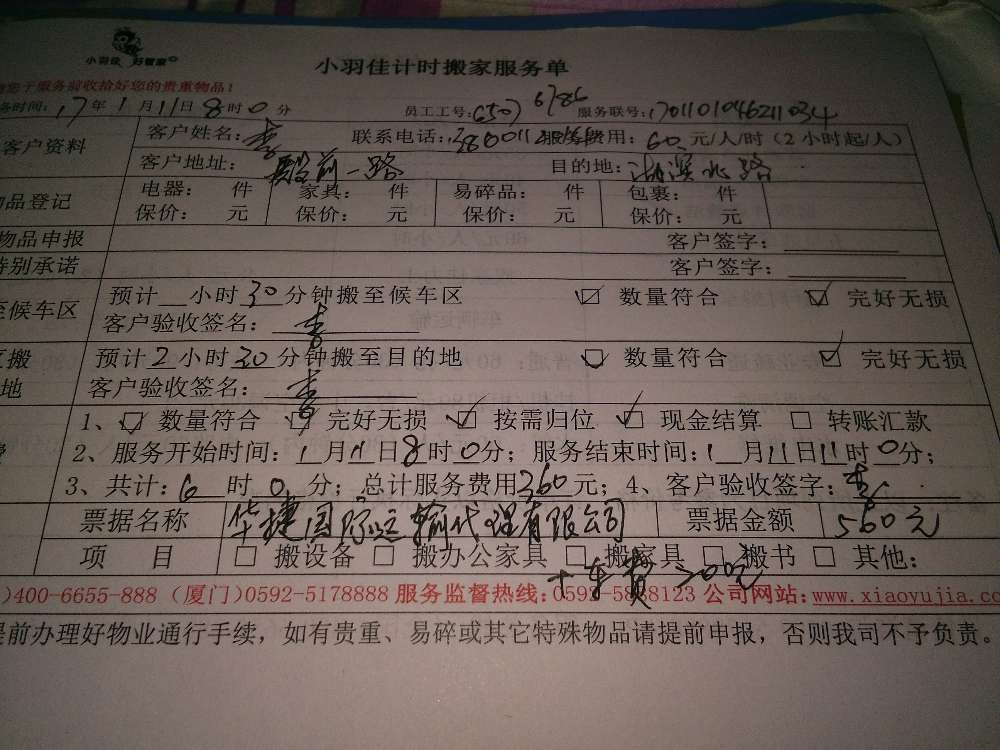 小羽佳 好管家
小羽佳计时搬家服务单
您于服务前收拾好您的贵重物品!
务时间: 17年1月11日8时0分 员工工号: 6507 6786 服务联号: 1701101046211034
客户资料 客户姓名: 李 联系电话: 服务费用: 60元/人/时(2小时起/人)
客户地址: 殿前一路 目的地: 湖滨北路
物品登记 电器: 件 家具: 件 易碎品: 件 包裹: 件
保价: 元 保价: 元 保价: 元 保价: 元
物品申报 客户签字:
特别承诺 客户签字:
至候车区 预计 小时30分钟搬至候车区 ☑ 数量符合 ☑ 完好无损
客户验收签名: 李
搬 预计2小时30分钟搬至目的地 ☑ 数量符合 ☑ 完好无损
地 客户验收签名: 李
1、☑ 数量符合 ☑ 完好无损 ☑ 按需归位 ☑ 现金结算 □ 转账汇款
2、服务开始时间: 1月11日8时0分; 服务结束时间: 1月11日11时0分;
3、共计: 6时0分; 总计服务费用360元; 4、客户验收签字: 李
票据名称 华捷国际运输代理有限公司 票据金额 560元
项 目 □ 搬设备 □ 搬办公家具 □ 搬家具 □ 搬书 □ 其他:
+车费200元
)400-6655-888 (厦门)0592-5178888 服务监督热线: 0592-5888123 公司网站: www.xiaoyujia.co
提前办理好物业通行手续，如有贵重、易碎或其它特殊物品请提前申报，否则我司不予负责。